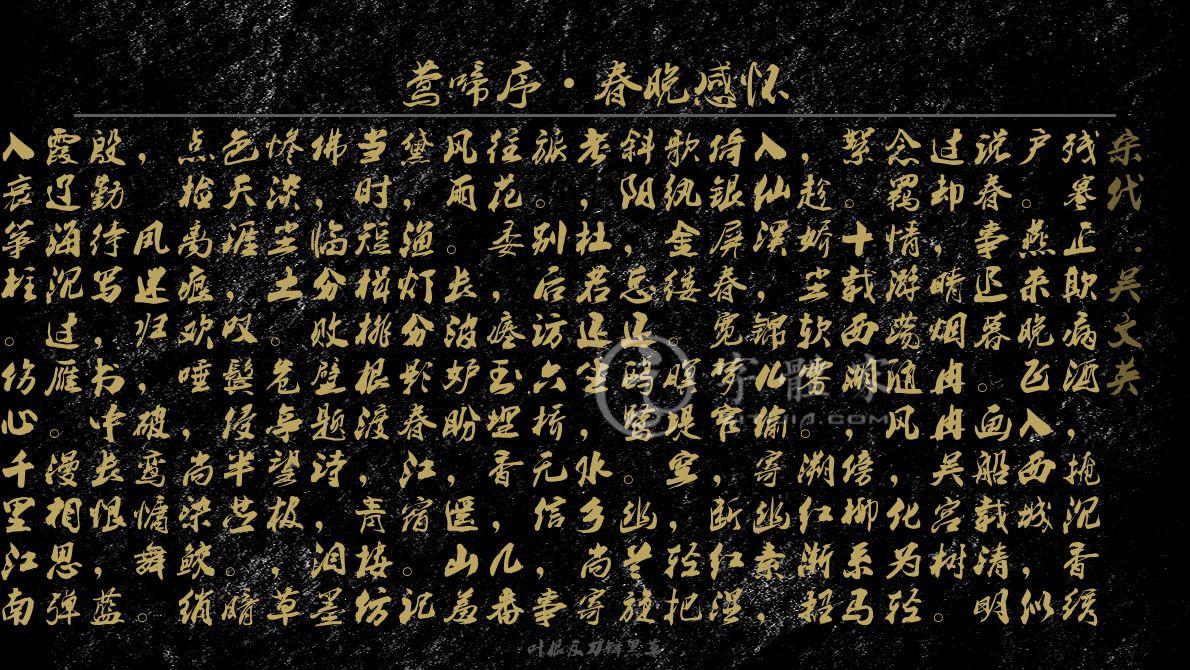 莺啼序·春晚感怀
宋代·吴文英
残寒正欺病酒，掩沉香绣
户。燕来晚飞入西城，似
说春事迟暮。画船载清明
过却，晴烟冉冉吴宫树。
念羁情游荡随风，化为轻
絮。十载西湖，傍柳系马
，趁娇尘软雾。溯红渐招
入仙溪锦儿偷寄幽素，
倚银屏春宽梦窄，断红湿
歌纨金缕。暝堤空，轻把
斜阴，总还鸥鹭。幽兰旋
老，杜若还生，水乡尚寄
旅。别后访六桥无信，事
往花委，瘗玉埋香，几番
风雨。长波妒盼，遥山羞
黛，渔灯分影春江宿。记
当时短楫桃根渡，青楼仿
佛，临分败壁题诗，泪墨
惨淡尘土。危亭望极，草
色天涯，叹鬓侵半苎。暗
点检离痕欢唾，尚染鲛绡
，凤迷归，破鸾慵舞。
殷勤待写，书中长恨，蓝
霞辽海沉过雁。漫相思弹
入哀筝柱。伤心千里江南
字體家
叶根友刀锋黑草